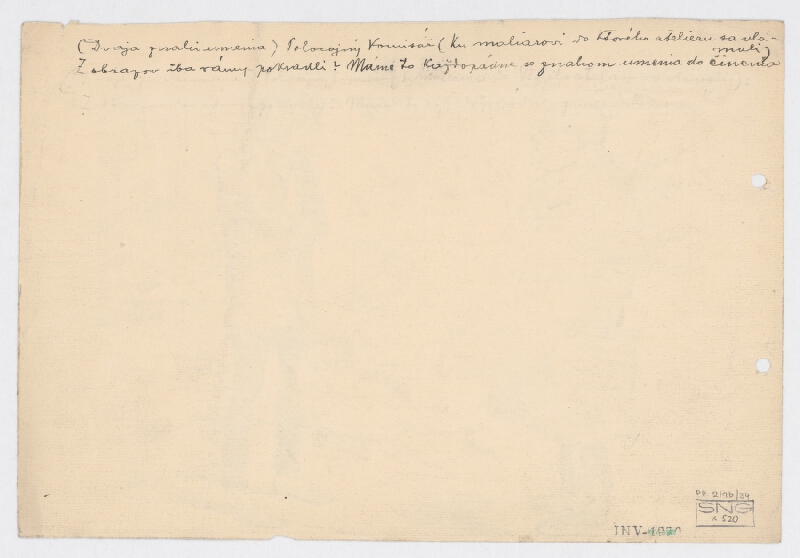 (Dvaja znalci umenia) Policajný Komisár (Ku maliarovi do ktorého atelieru sa vlá-
muli)
Z obrazov iba rámy pokradli? Máme to každopádne so znalcom umenia do činenia
2/76/34
SNG
K 520
INV-